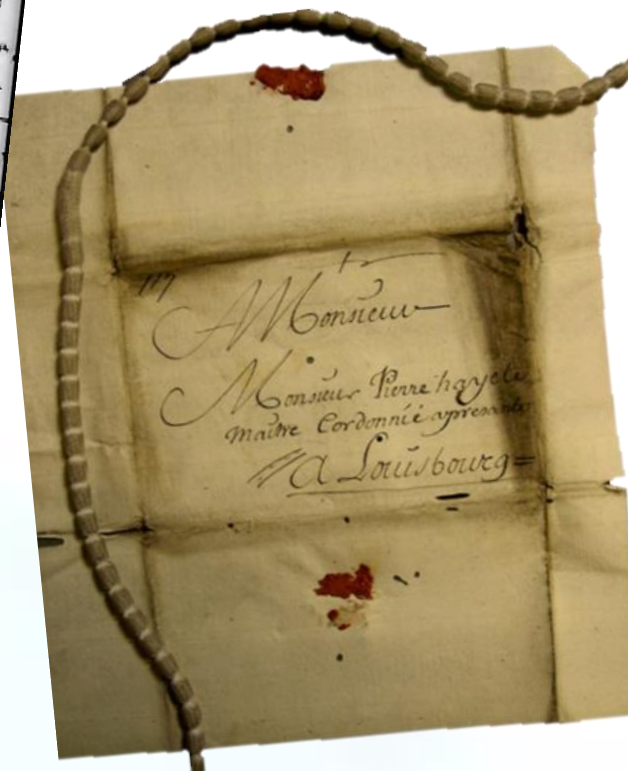 A Monsieur
Monsieur Pierre hayet
Maitre Cordonnié apresent
a Louisbourg =